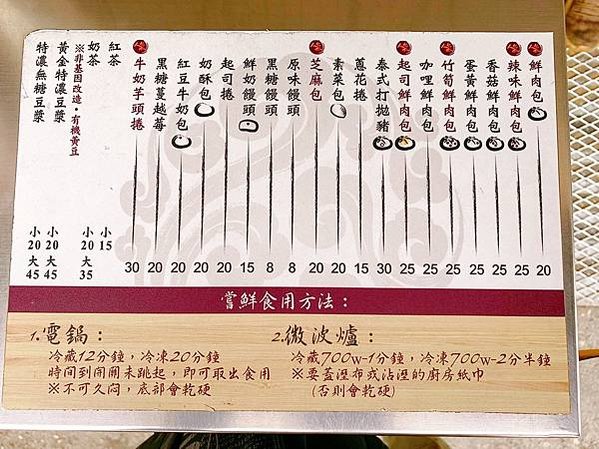 鮮肉包 20
辣味鮮肉包 25
香菇鮮肉包 25
蛋黃鮮肉包 25
竹筍鮮肉包 25
咖哩鮮肉包 25
起司鮮肉包 25
泰式打拋豬 30
蔥花捲 15
素菜包 20
芝麻包 20
原味饅頭 8
黑糖饅頭 8
鮮奶饅頭 15
起司捲 20
奶酥包 20
紅豆牛奶包 20
黑糖蔓越莓 20
牛奶芋頭捲 30
紅茶 小15
奶茶 小20 大35
※非基因改造・有機黃豆
黃金特濃豆漿 小20 大45
特濃無糖豆漿 小20 大45
嘗鮮食用方法：
1.電鍋：
冷藏12分鐘，冷凍20分鐘
時間到開關未跳起，即可取出食用
※不可久悶，底部會乾硬
2.微波爐：
冷藏700w-1分鐘，冷凍700w-2分半鐘
※要蓋溼布或沾溼的廚房紙巾
(否則會乾硬)